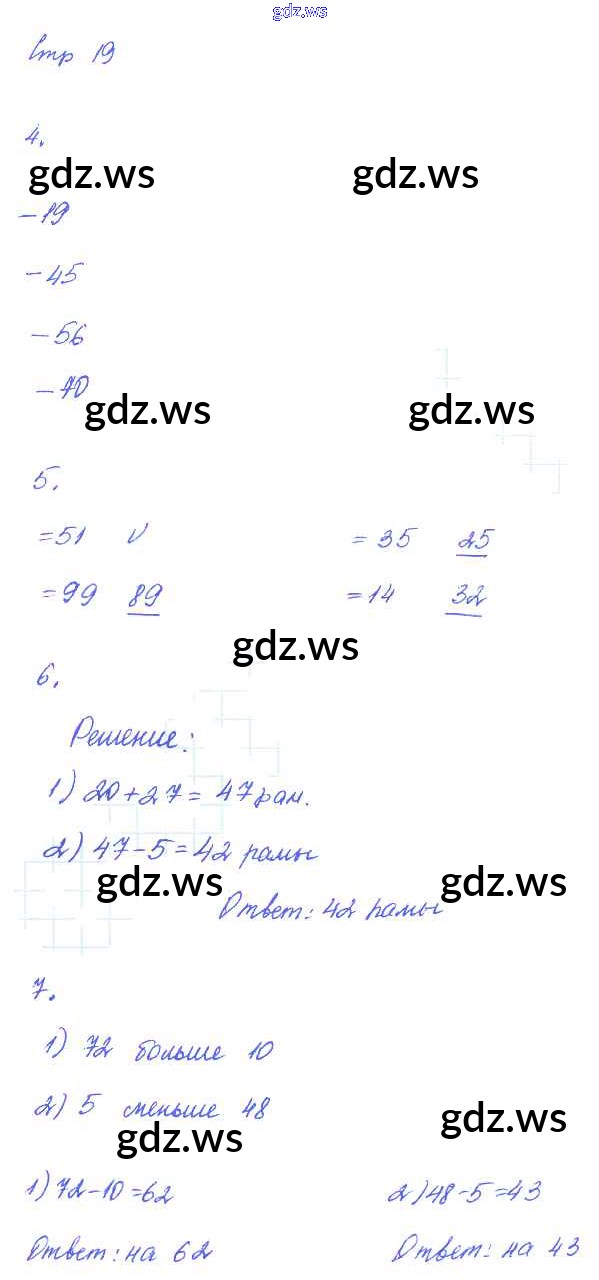 gdz.ws
Стр 19
4.
gdz.ws gdz.ws
-19
-45
-56
-70
gdz.ws gdz.ws
5.
=51 V = 35 25
=99 89 =14 32
gdz.ws
6.
Решение:
1) 20+27= 47 рам.
2) 47-5=42 рамы
gdz.ws gdz.ws
Ответ: 42 рамы
7.
1) 72 больше 10
2) 5 меньше 48
gdz.ws gdz.ws
1) 72-10=62 2) 48-5=43
Ответ: на 62 Ответ: на 43